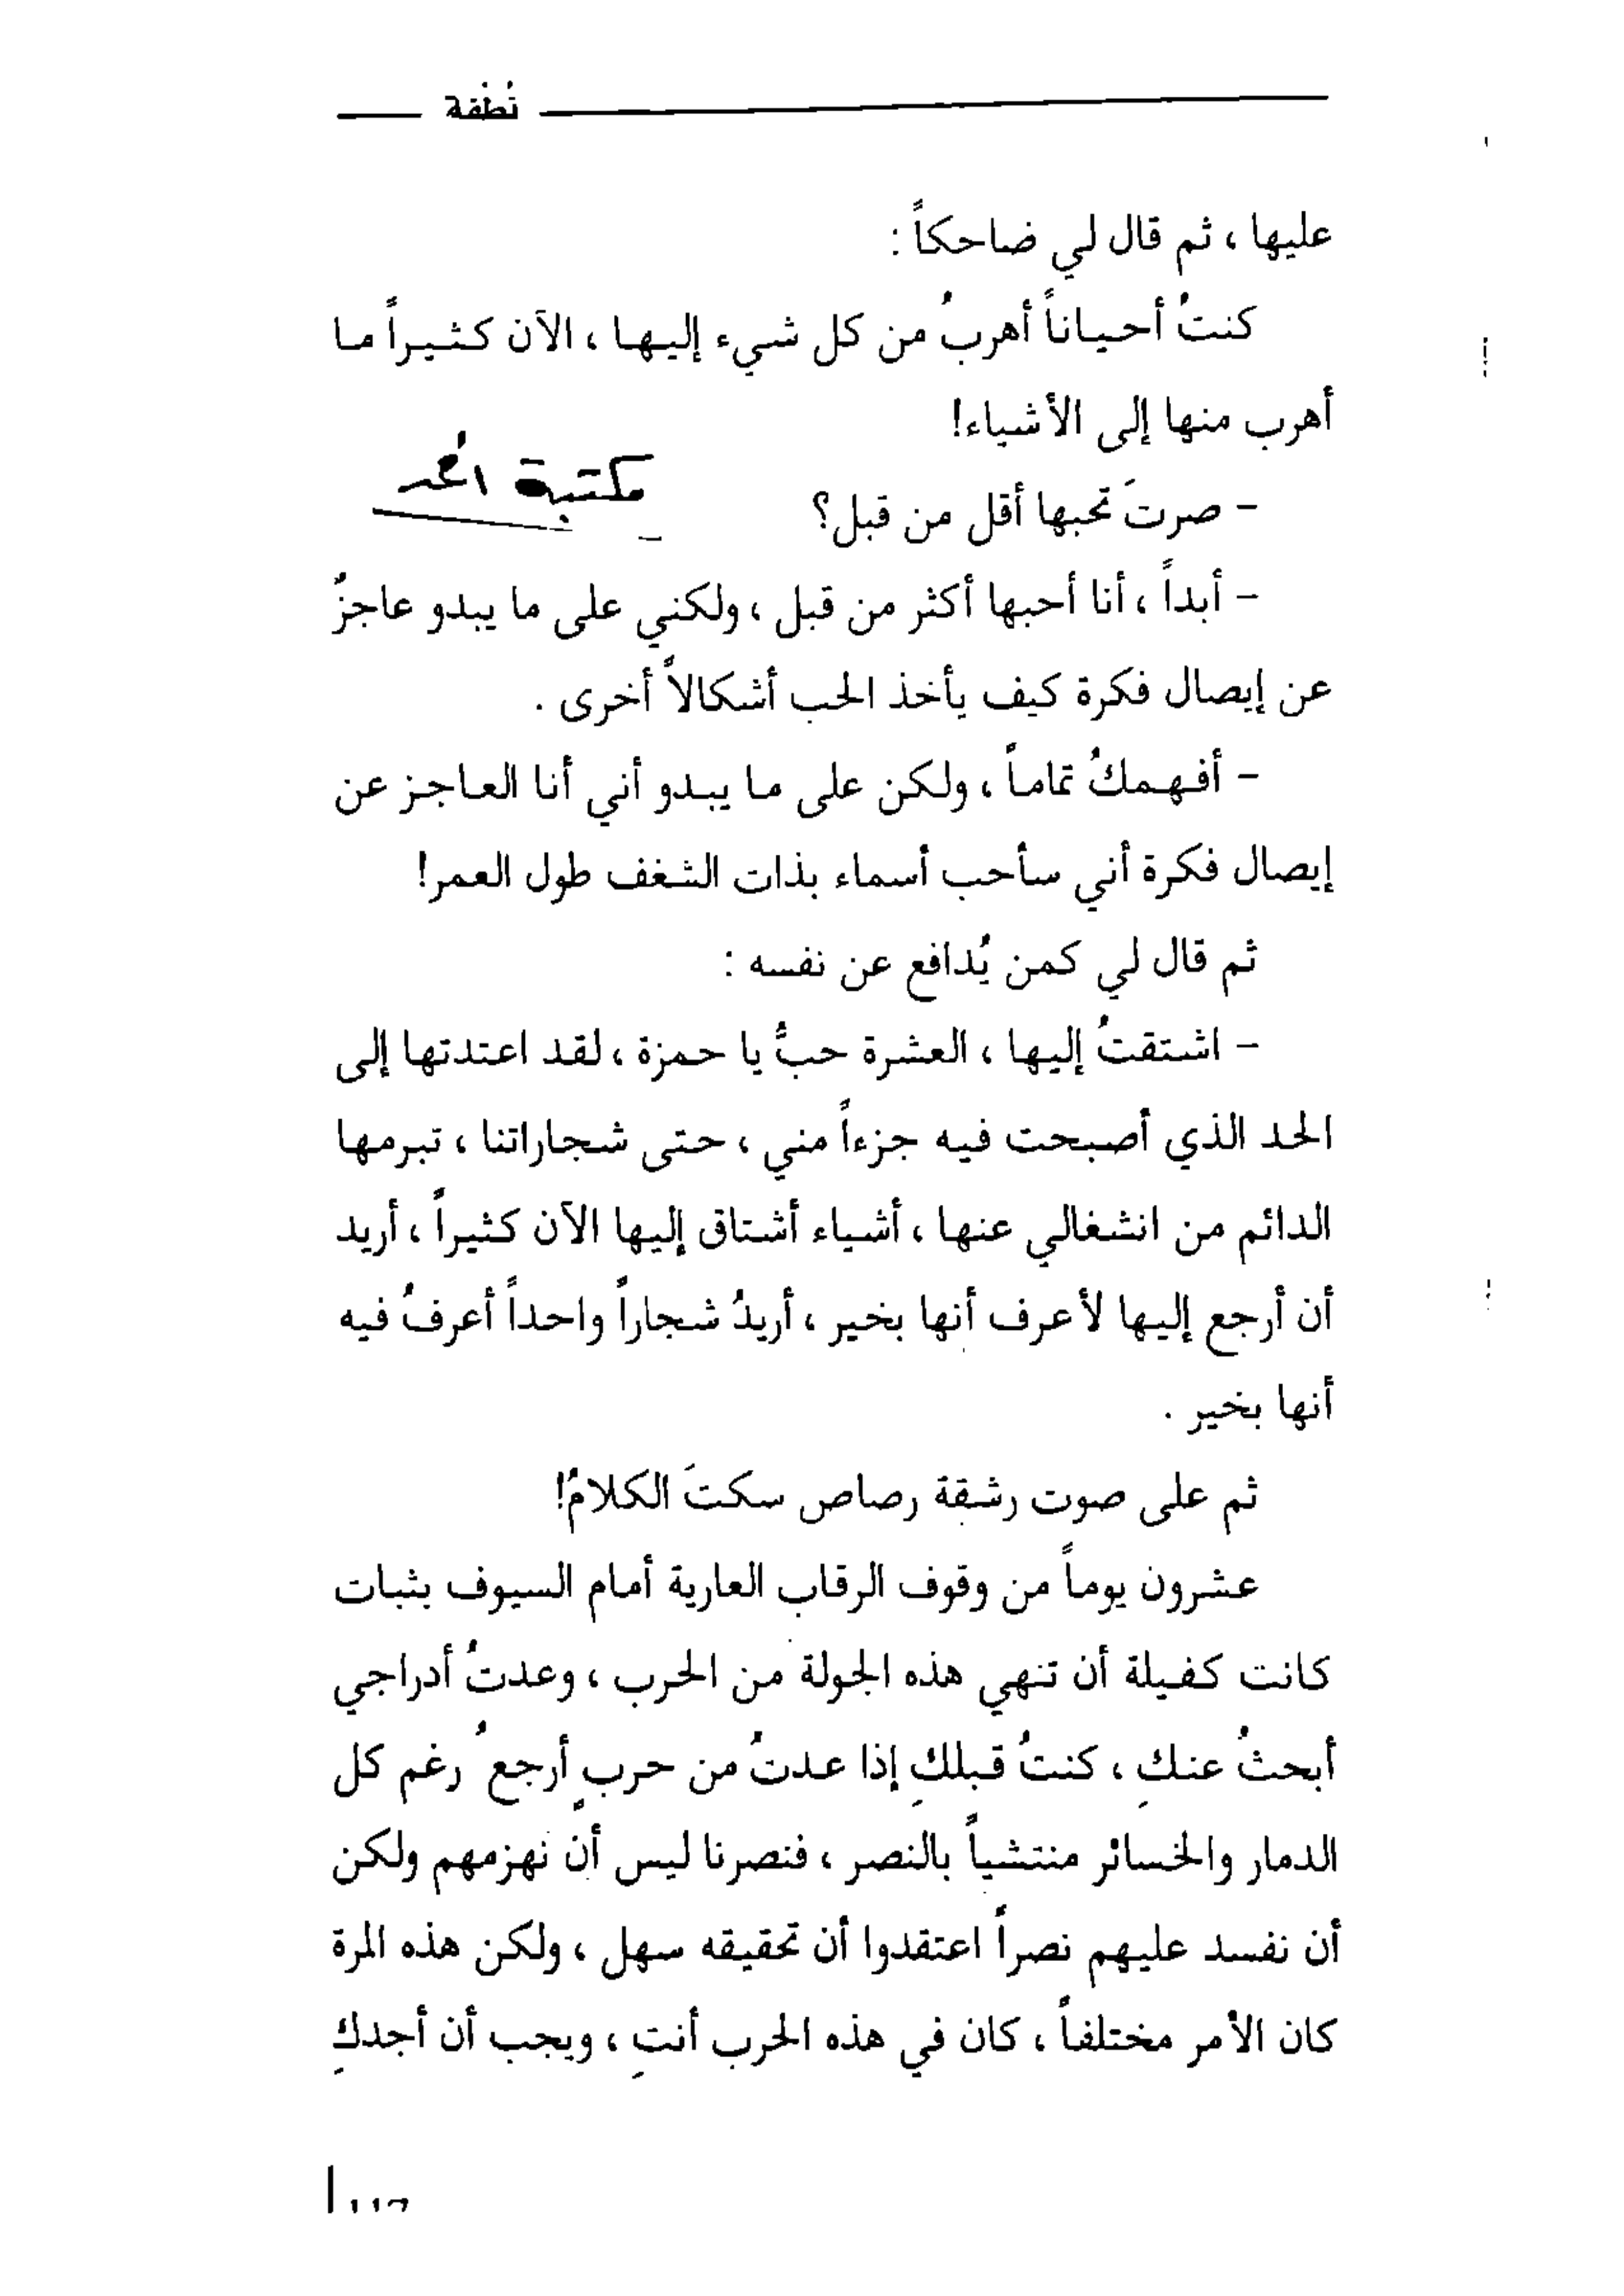 نُطْفة
عليها ، ثم قال لي ضاحكاً :
كنتُ أحياناً أهربُ من كل شيء إليها ، الآن كثيراً ما
أهرب منها إلى الأشياء!
مكتبة
- صرتَ تحبها أقل من قبل؟
- أبداً ، أنا أحبها أكثر من قبل ، ولكني على ما يبدو عاجزٌ
عن إيصال فكرة كيف يأخذ الحب أشكالاً أخرى .
- أفهمكُ تماماً ، ولكن على ما يبدو أني أنا العاجز عن
إيصال فكرة أني سأحب أسماء بذات الشغف طول العمر!
ثم قال لي كمن يُدافع عن نفسه :
- اشتقتُ إليها ، العشرة حبٌّ يا حمزة ، لقد اعتدتها إلى
الحد الذي أصبحت فيه جزءاً مني ، حتى شجاراتنا ، تبرمها
الدائم من انشغالي عنها ، أشياء أشتاق إليها الآن كثيراً ، أريد
أن أرجع إليها لأعرف أنها بخير ، أريدُ شجاراً واحداً أعرفُ فيه
أنها بخير .
ثم على صوت رشقة رصاص سكتَ الكلامُ!
عشرون يوماً من وقوف الرقاب العارية أمام السيوف بثبات
كانت كفيلة أن تنهي هذه الجولة من الحرب ، وعدتُ أدراجي
أبحثُ عنكِ ، كنتُ قبلكِ إذا عدتُ من حربٍ أرجعُ رغم كل
الدمار والخسائر منتشياً بالنصر ، فنصرنا ليس أن نهزمهم ولكن
أن نفسد عليهم نصراً اعتقدوا أن تحقيقه سهل ، ولكن هذه المرة
كان الأمر مختلفاً ، كان في هذه الحرب أنتِ ، ويجب أن أجدكِ